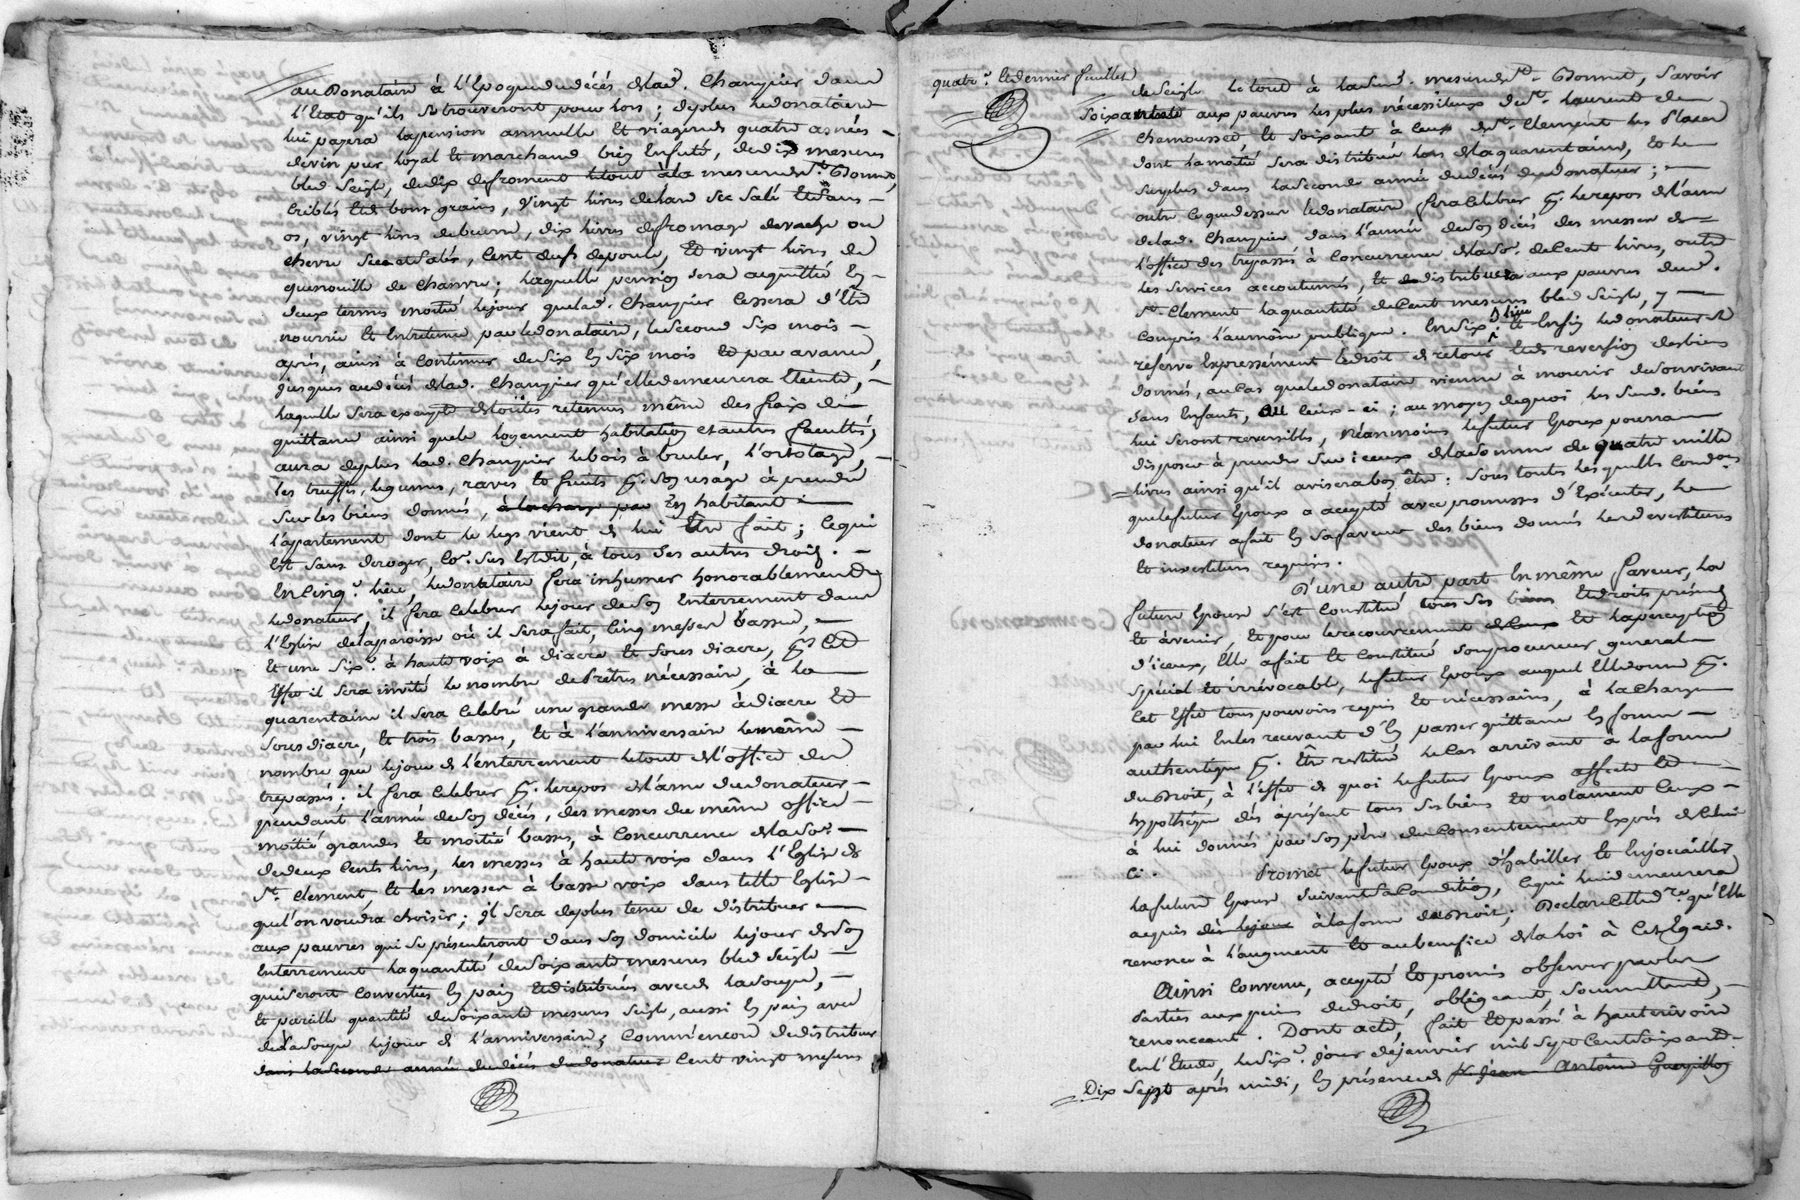 au Donataire à l'Epoque du décés de lad.e Champier dans
l'Etat qu'ils se trouveront pour lors ; de plus le donataire
lui payera la pension annuelle et viagere de quatre asnées
de vin pur loyal et marchand bien Enfuté, de dix mesures
bled seigle, de dix de froment le tout à la mesure de St. Bonnet,
criblés et de bons grains, vingt livres de lard sec salé et sans
os, vingt livres de beurre, dix livres de fromage de vache ou
chevre secs et salés, Cent œufs de poule, Et vingt livres de
quenouille de chanvre. laquelle pension sera acquittée En
deux termes moitié le jour que lad. Champier Cessera d'Etre
nourrie et Entretenue par le donataire, le second six mois
après, ainsi à Continuer de six En six mois Et par avance,
jusques au décés de lad. Champier qu'elle demeurera Eteinte,
laquelle sera exempte de toutes retenues même des fraix de
quittance ainsi que le logement habitation et autres facultés,
aura de plus lad. Champier le bois à bruler, l'ortolage,
les truffes, legumes, raves et fruits p.r son usage à prendre
sur les biens donnés, à la charge par En habitant
l'appartement dont le legs vient de lui Etre fait ; Ce qui
Est sans deroger, Co.e sus Est dit, à tous ses autres droits.
En Cinq.e lieu, le donataire fera inhumer honorablement
le donateur, il fera Celebrer le jour de son Enterrement dans
l'Eglise de la paroisse où il sera fait, Cinq messes basses,
Et une six.e à haute voix à diacre et sous diacre, p.r Cet
Effet il sera invité le nombre de Prêtres nécessaire, à la
quarantaine il sera Celebré une grande messe à diacre Et
sous diacre, Et trois basses, Et à l'anniversaire le même
nombre que le jour de l'enterrement le tout de l'office des
trepassés ; il fera Celebrer p.r le repos de l'ame du donateur
pendant l'année de son décés, des messes du même office
moitié grandes et moitié basses, à Concurrence de la so.e
de deux Cents livres, les messes à haute voix dans l'Eglise de
St. Clement, Et les messes à basse voix dans telle Eglise
qu'on voudra choisir ; il sera de plus tenu de distribuer
aux pauvres qui se présenteront dans son domicile le jour de son
Enterrement la quantité de soixante mesures bled seigle
qui seront Converties En pain Et distribués avec de la soupe,
Et pareille quantité de soixante mesures seigle, aussi En pain avec
de la soupe le jour de l'anniversaire, Comm'encore de distribuer
dans la seconde année du décés du donateur Cent vingt mesures
quatr.e et dernier feuillet
de seigle le tout à lad. mesure de St. Bonnet, savoir
soixante aux pauvres les plus nécessiteux de St. Laurent de
Chamousset, Et soixante à Ceux de St. Clement les Places
dont la moitié sera distribuée lors de la quarantaine, Et le
surplus dans la seconde année du décés du donateur ;
outre Ce que dessus le donataire fera Celebrer p.r le repos de l'ame
de lad. Champier dans l'année de son décés des messes de
l'office des trepassés à Concurrence de la so.e de Cent livres, outre
les services accoutumés, Et distribuera aux pauvres dud.
St. Clement la quantité de Cent mesures bled seigle, y
Compris l'aumône publique. En six.e lieu Et Enfin le donateur se
réserve Expressément le droit de retour Et de reversion des biens
donnés, au Cas que le donataire vienne à mourir de son vivant
sans Enfants, ou Ceux-ci ; au moyen de quoi les sus d. biens
lui seront reversibles, Néanmoins le futur Epoux pourra
disposer à prendre sur iceux de la somme de quatre mille
livres ainsi qu'il avisera bon être : sous toutes les quelles Condi.ons
que le futur Epoux a accepté avec promesses d'Exécuter, le
donateur a fait En sa faveur des biens donnés les devestitures
Et investitures requises.
D'une autre part En même faveur, la
future Epouse s'est Constitué tous ses biens Et droits présents
Et à venir, Et pour le recouvrement d'iceux Et la perception
d'iceux, Elle a fait et Constitué son procureur general
spécial Et irrévocable, le futur Epoux auquel Elle donne p.r
Cet Effet tous pouvoirs requis Et nécessaires, à la charge
par lui En les recevant d'En passer quittance En forme
authentique p.r Etre restitué le Cas arrivant à la forme
du Droit, à l'effet de quoi le futur Epoux affecte Et
hypothéque dès àprésent tous ses biens Et notament Ceux
à lui donnés par son père du Consentement Exprès de Celui
ci. Promet le futur Epoux d'habiller Et Enjouailler
la future Epouse suivant sa Condition, Ce qui lui demeurera
acquis dès le jour à la forme du Droit ; Declare Cette d.re qu'Elle
renonce à l'augment Et au benefice de la loi à Cet Egard.
Ainsi Convenu, accepté Et promis observer par les
Parties aux peines de droit, obligeant, soumettant,
renonceant. Dont acte, fait Et passé à hauterivoire
En l'Etude, le six.e jour de janvier mil sept Cent soixante
Dix sept après midi, En présence de Sr. Jean Antoine Guerpillon